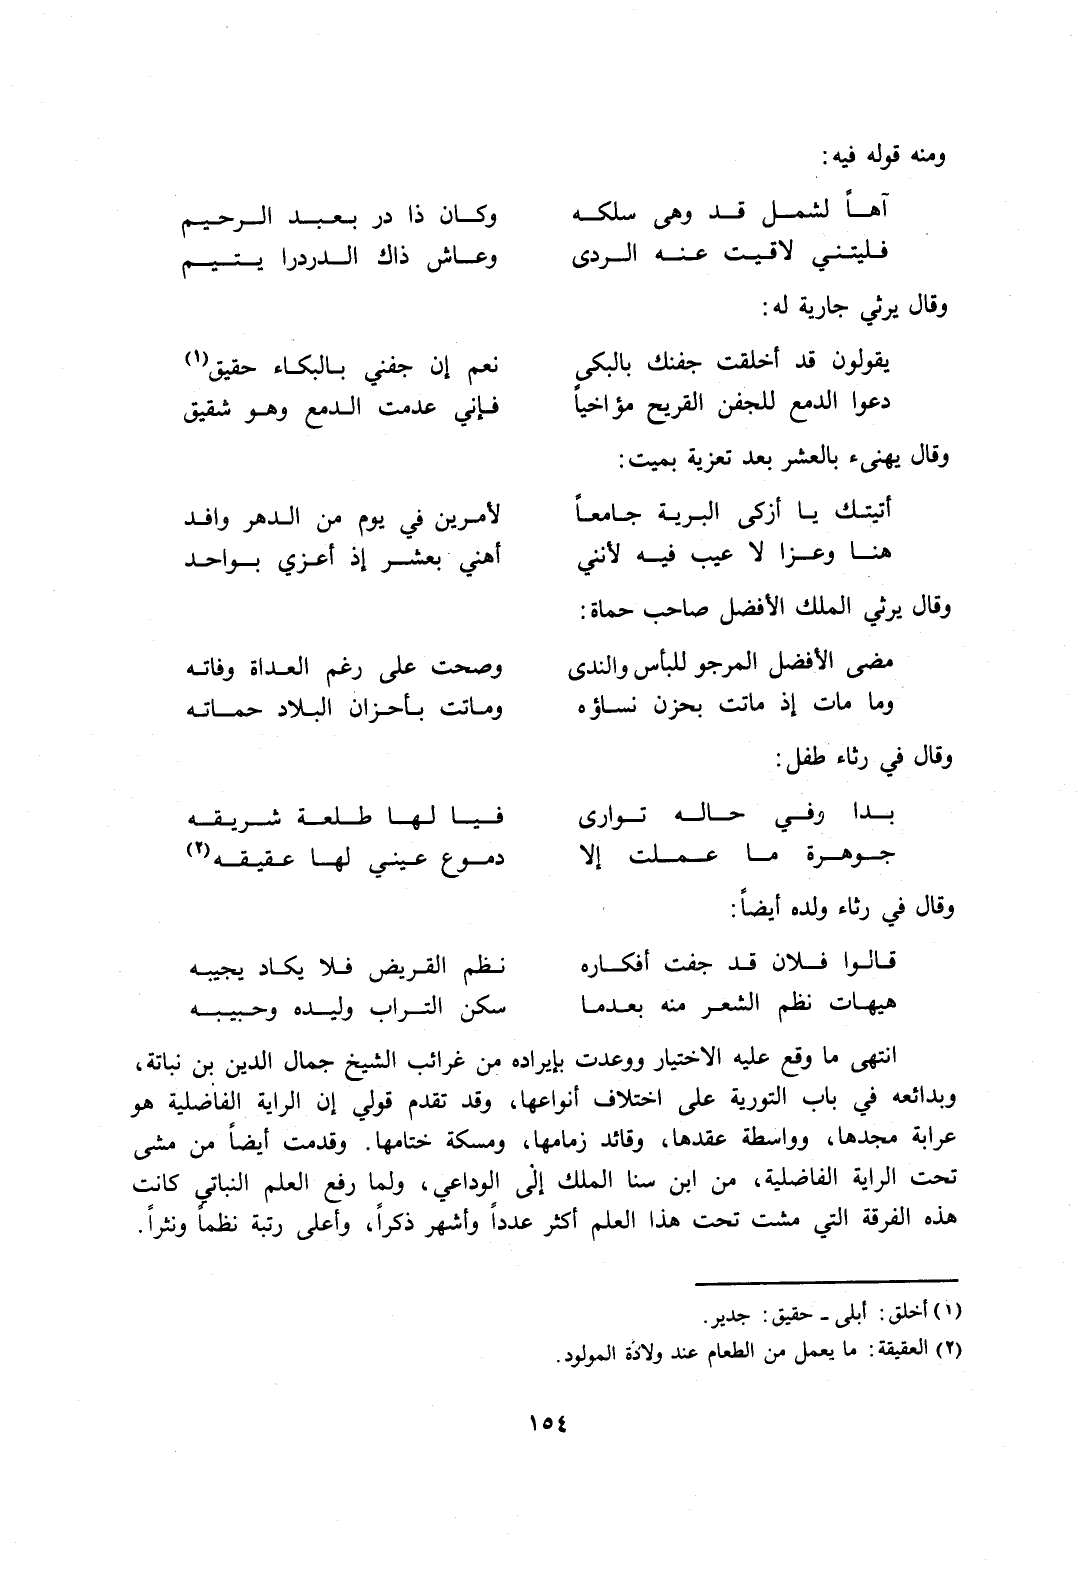 ومنه قوله فيه:
آهاً لشمل قد وهى سلكه وكان ذا در بعبد الرحيم
فليتني لاقيت عنه الردى وعاش ذاك الدردرا يتيم
وقال يرثي جارية له:
يقولون قد أخلقت جفنك بالبكى نعم إن جفني بالبكاء حقيق(١)
دعوا الدمع للجفن القريح مؤاخياً فإني عدمت الدمع وهو شقيق
وقال يهنىء بالعشر بعد تعزية بميت:
أتيتك يا أزكى البرية جامعاً لأمرين في يوم من الدهر وافد
هنا وعزا لا عيب فيه لأنني أهني بعشر إذ أعزي بواحد
وقال يرثي الملك الأفضل صاحب حماة:
مضى الأفضل المرجو للبأس والندى وصحت على رغم العداة وفاته
وما مات إذ ماتت بحزن نساؤه وماتت بأحزان البلاد حماته
وقال في رثاء طفل:
بدا وفي حاله توارى فيا لها طلعة شريقه
جوهرة ما عملت إلا دموع عيني لها عقيقه(٢)
وقال في رثاء ولده أيضاً:
قالوا فلان قد جفت أفكاره نظم القريض فلا يكاد يجيبه
هيهات نظم الشعر منه بعدما سكن التراب وليده وحبيبه
انتهى ما وقع عليه الاختيار ووعدت بإيراده من غرائب الشيخ جمال الدين بن نباتة،
وبدائعه في باب التورية على اختلاف أنواعها، وقد تقدم قولي إن الراية الفاضلية هو
عرابة مجدها، وواسطة عقدها، وقائد زمامها، ومسكة ختامها. وقدمت أيضاً من مشى
تحت الراية الفاضلية، من ابن سنا الملك إلى الوداعي، ولما رفع العلم النباتي كانت
هذه الفرقة التي مشت تحت هذا العلم أكثر عدداً وأشهر ذكراً، وأعلى رتبة نظماً ونثراً.
(١) أخلق: أبلى ـ حقيق: جدير.
(٢) العقيقة: ما يعمل من الطعام عند ولادة المولود.
١٥٤